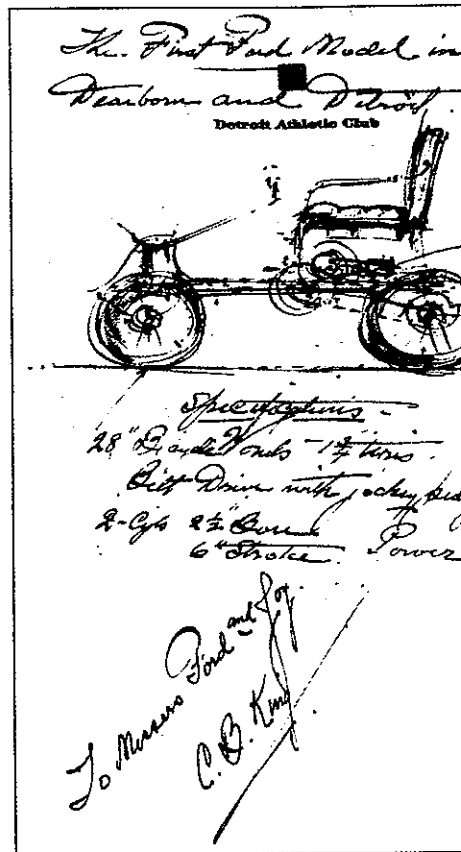 The First Ford Model in
Dearborn and Detroit.
Detroit Athletic Club
Specifications -
28" Bicycle Wheels - 1¾ tires
Belt Drive with jockey
2-Cyls 2½" Bore
6" Stroke. Power
To Messers Ford and Joy.
C. B. King